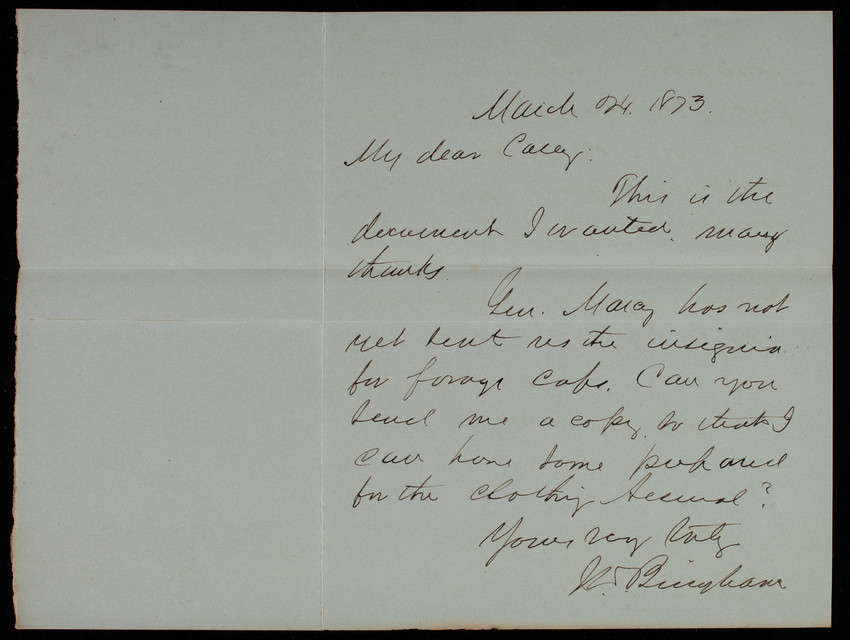 March 24. 1873.
My dear Casey:
This is the
document I wanted. many
thanks.
Gen. Marcy has not
yet sent us the insignia
for forage caps. Can you
send me a copy, so that I
can have some prepared
for the clothing
Yours very truly
J. Bingham